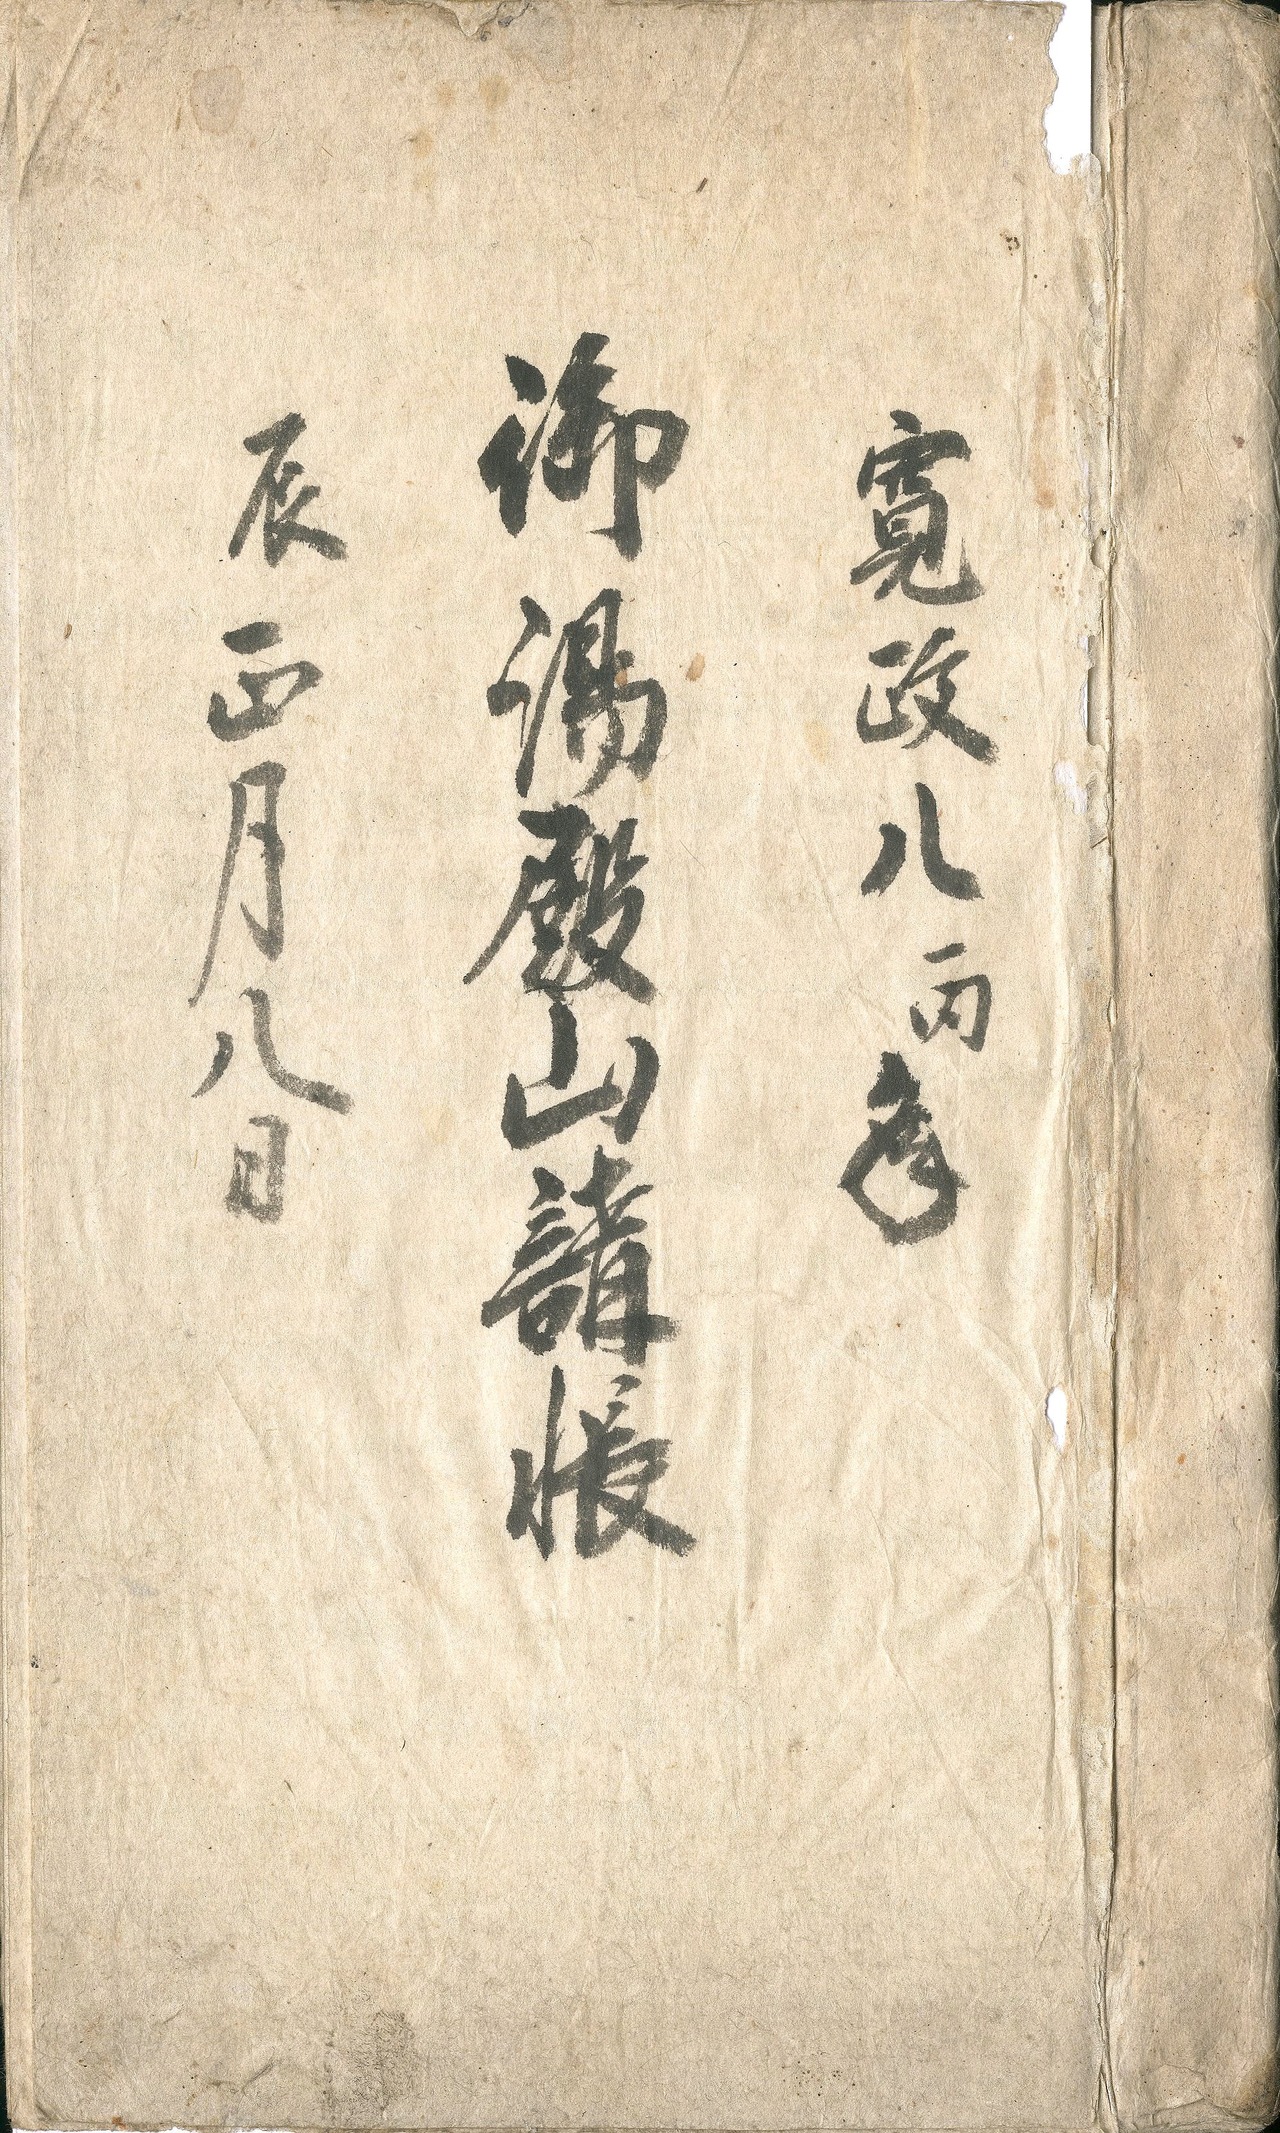 寛政八丙年
御湯殿山講帳
辰正月八日